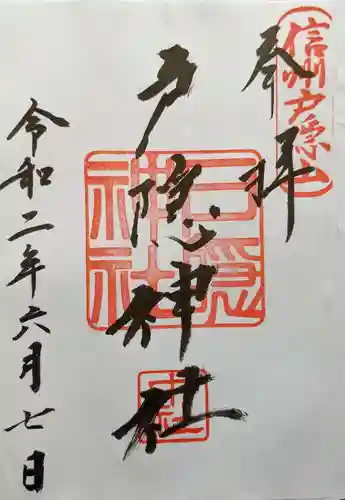 奉拝
信州戸隠山
戸隠神社
戸隠神社
中社
令和二年六月七日